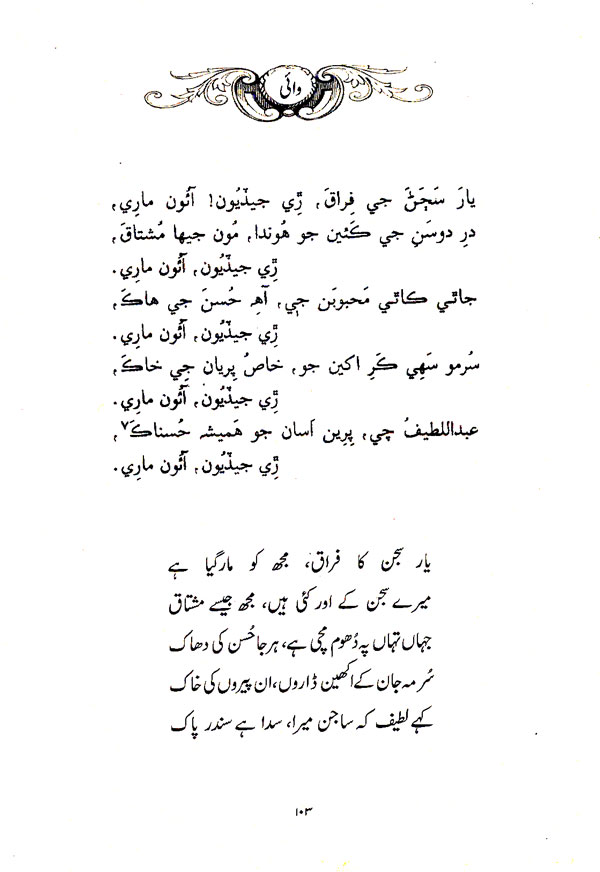 وائي
يارَ سَڄَڻَ جي فِراقَ، ڙِي جيڏيُون! آئُون ماري،
درِ دوسَنِ جي ڪَئين جو هُوندا، مُون جيها مُشتاقَ،
ڙِي جيڏيُون، آئُون مارِي.
جاٿي ڪاٿي مَحبوبَن جي، آهِہ حُسنَ جي هاڪَ،
ڙِي جيڏيُون، آئُون مارِي.
سُرمو سَهِي ڪَرِ اکين جو، خاصُ پِريان جِي خاڪَ،
ڙِي جيڏيُون، آئُون مارِي.
عبداللطيفُ چي، پِرِين اَسان جو هَميشہ حُسناڪَ٧،
ڙِي جيڏيُون، آئُون مارِي.
یار سجن کا فراق، مجھ کو مار گیا ہے
میرے سجن کے اور کئی ہیں، مجھ جیسے مشتاق
جہاں تہاں پہ دُھوم مچی ہے، ہر جا حُسن کی دھاک
سُرمہ جان کے اکھین ڈاروں، ان پیروں کی خاک
کہے لطیف کہ ساجن میرا، سدا ہے سندر پاک
۱۰۳